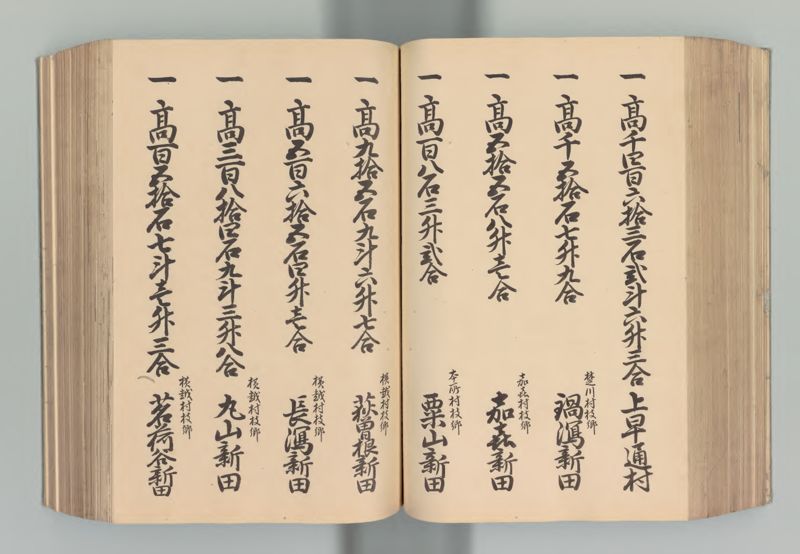 一 高千四百六拾三石弐斗六升三合 上早通村
一 高千五拾石七升九合
楚川村枝郷
鍋潟新田
一 高五拾五石八升壱合
嘉㐂村枝郷
嘉㐂新田
一 高百八石三升弐合
本所村枝郷
栗山新田
一 高九拾五石九斗六升七合
横越村枝郷
萩曽根新田
一 高五百六拾五石四升壱合
横越村枝郷
長潟新田
一 高三百八拾四石九斗三升八合
横越村枝郷
丸山新田
一 高百五拾石七斗壱升三合
横越村枝郷
茗荷谷新田